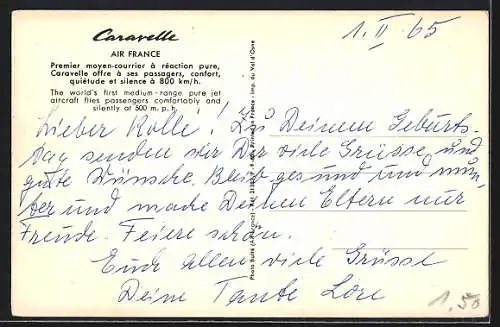 1. II 65
Caravelle
AIR FRANCE
Premier moyen-courrier à réaction pure,
Caravelle offre à ses passagers, confort,
quiétude et silence à 800 km/h.
The world's first medium-range pure jet
aircraft flies passengers comfortably and
silently at 500 m. p. h.
Lieber Rolle! Zu Deinem Geburts-
tag senden wir Dir viele Grüsse und
gute Wünsche. Bleib gesund und mun-
ter und mache Deinen Eltern nur
Freude. Feiere schön.
Euch allen viele Grüsse
Deine Tante Lore
1.50
Imp. du Val d'Osne